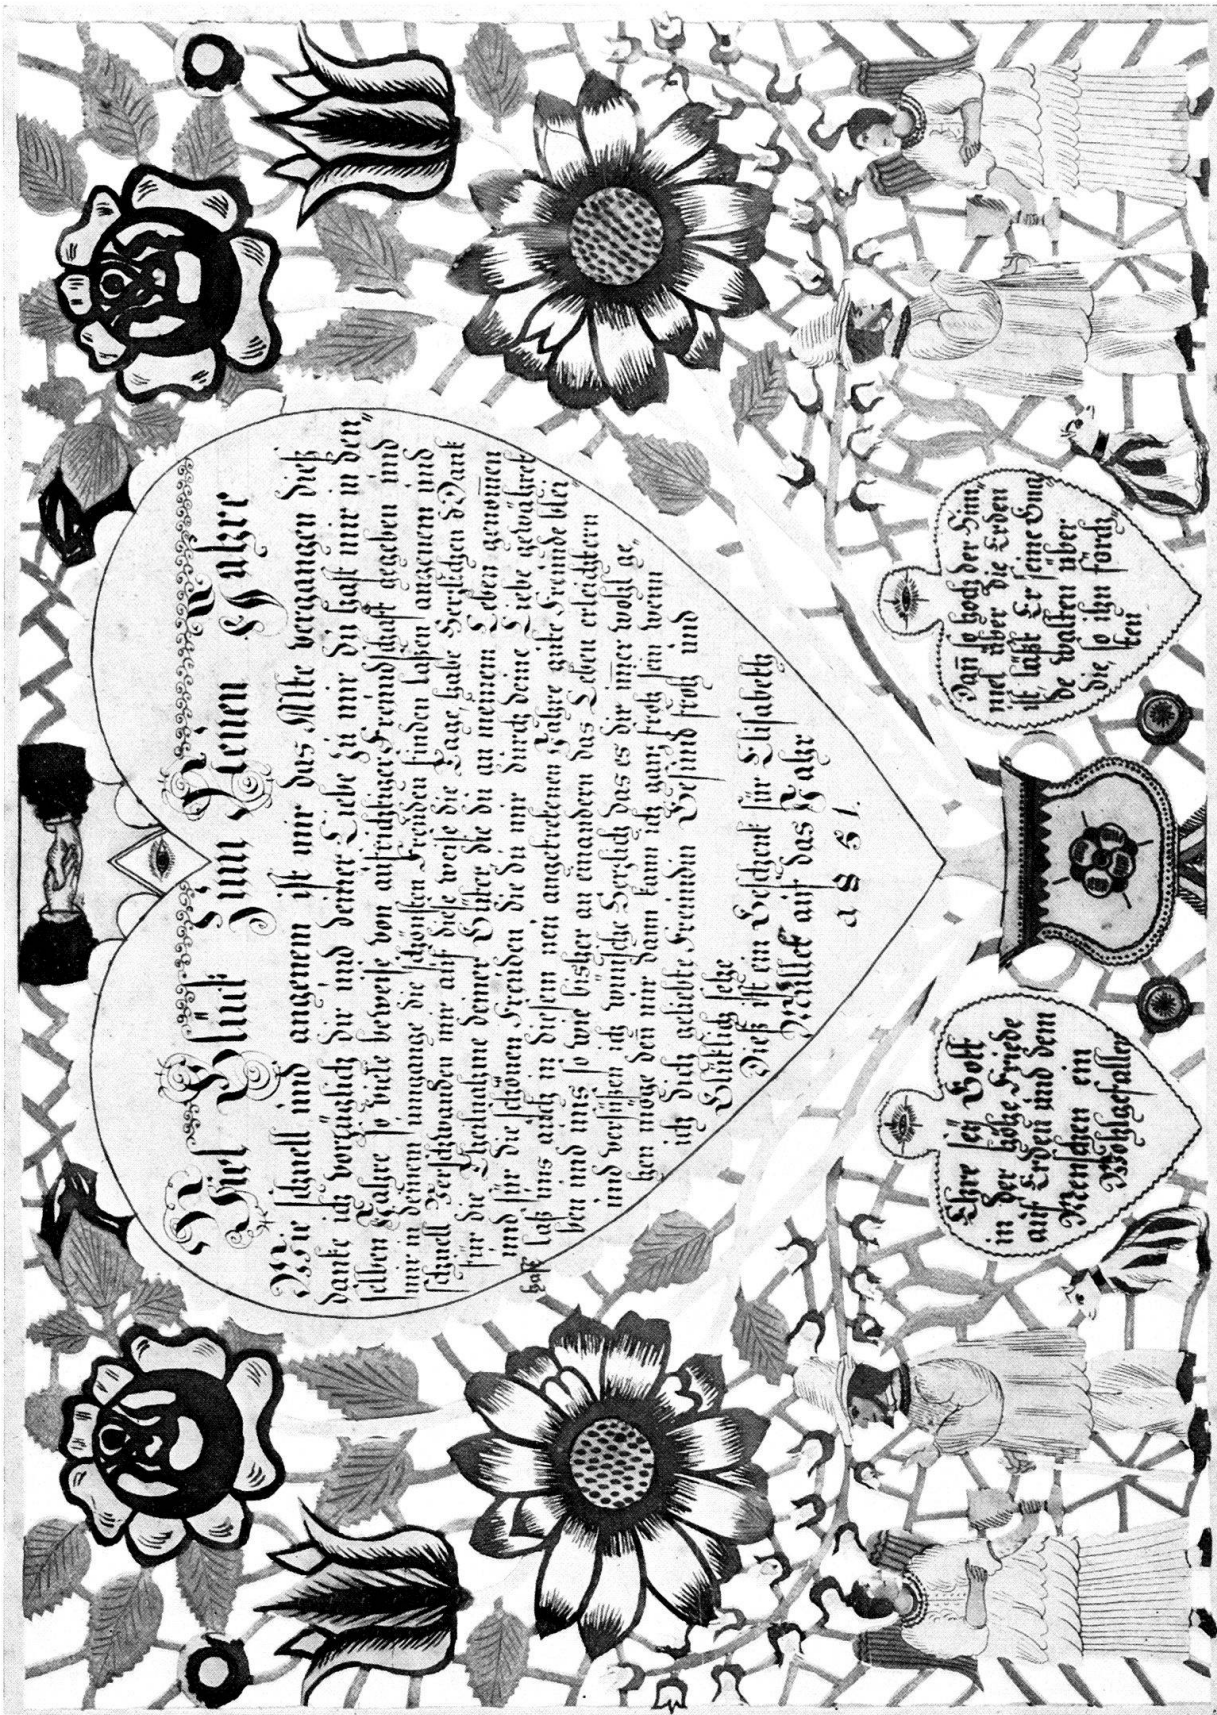 Viel Glük zum Neuen Jahre
Wie schnell und angenem ist mir das Alte vergangen dieß
danke ich vorzüglich dir und deiner Liebe zu mir du hast mir in den„
selben Jahre so viele beweise von aufrichtiger Freundschaft gegeben und
mir in deinem umgange die schönsten Freuden finden laßen angenem und
schnell Verschwanden mir auf diese weise die Tage, habe Herzlichen Dank
für die Theilnahme deiner Gütker die du an meinem Leben genom̄en
und für die schönen Freuden die du mir durch deine Liebe gewähret
hast laß uns auch in diesem neu angetretenen Jahre gute Freunde blei
ben und uns so wie bisher an einandern das Leben erleichtern
und versüßen ich wünsche Herzlich das es dir im̄er wohl ge„
hen möge den nur dann kann ich ganz froh sein wenn
ich dich geliebte Freundin Gesund froh und
Glüklich sehe
Dieß ist ein Geschenk für Elisabeth
MülleR auf das Jahr
1881.
Ehre seÿ Gott
in der höhe Friede
auf Erden und dem
Menschen ein
Wohlgefallen
Dan̄ so hoch der Him„
mel über die Erden
ist, läßt Er seine Gna„
de walten über
die, so ihn förch„
ten